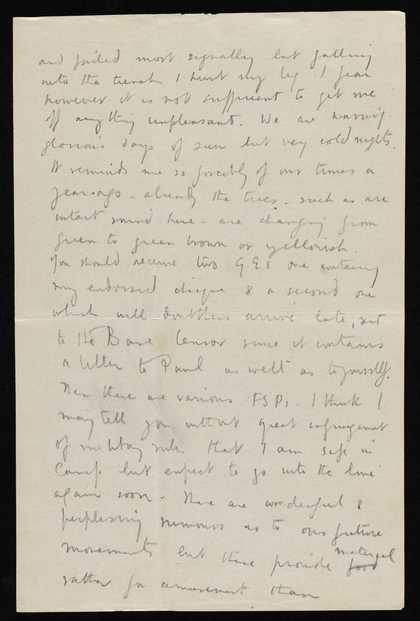 and failed most signally but falling
into the trench I hurt my leg I fear
however it is not sufficient to get me
off anything unpleasant. We are having
glorious days of sun but very cold nights.
It reminds me so forcibly of our times a
year ago - already the trees - such as are
intact round here - are changing from
green to green brown or yellowish.
You should receive two G.E.s one containing
my endorsed cheque & a second one
which will doubtless arrive late, sent
to the Base Censor since it contains
a letter to Paul as well as to yourself.
Then there are various FSPs. I think I
may tell you without great infringement
of military rules that I am safe in
Camp but expect to go into the line
again soon. There are wonderful &
perplexing rumours as to our future
movements but these provide material food
rather for amusement than